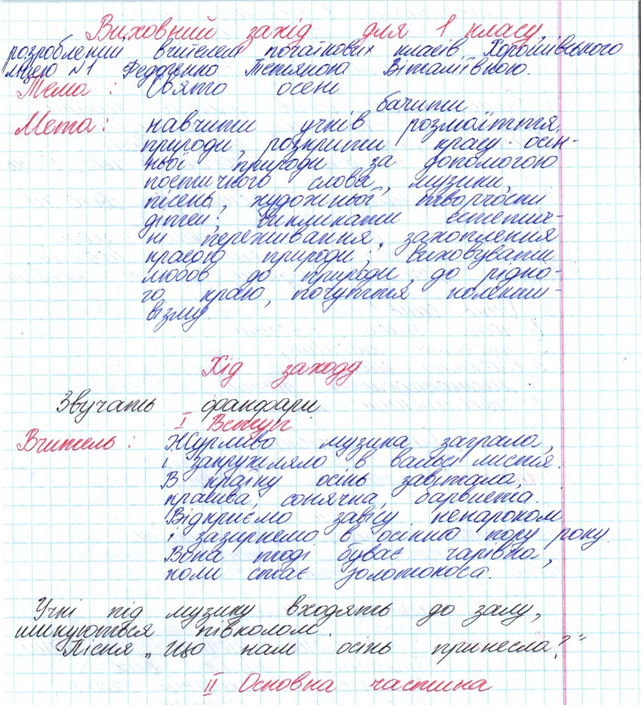 Виховний захід для 1 класу,
розроблений вчителем початкових класів Хорошівського
ліцею №1 Федоренко Тетяною Віталіївною.
Тема: Свято осені
бачити
Мета: навчити учнів розмаїття
природи, розкрити красу осін-
ньої природи за допомогою
поетичного слова, музики,
пісень, художньої творчості
дітей; викликати естетич-
ні переживання, захоплення
красою природи; виховувати
любов до природи, до рідно-
го краю, почуття колекти-
візму.
Хід заходу
Звучать фанфари
I Вступ
Вчитель: Журливо музика заграла,
і закружляло в вальсі листя.
В країну осінь завітала,
красива, сонячна, барвиста.
Відкриємо завісу ненароком
і зазирнемо в осінню пору року.
Вона тоді буває чарівна,
коли стає золотокоса.
Учні під музику входять до залу,
шикуються півколом.
Пісня „Що нам осінь принесла?"
II Основна частина